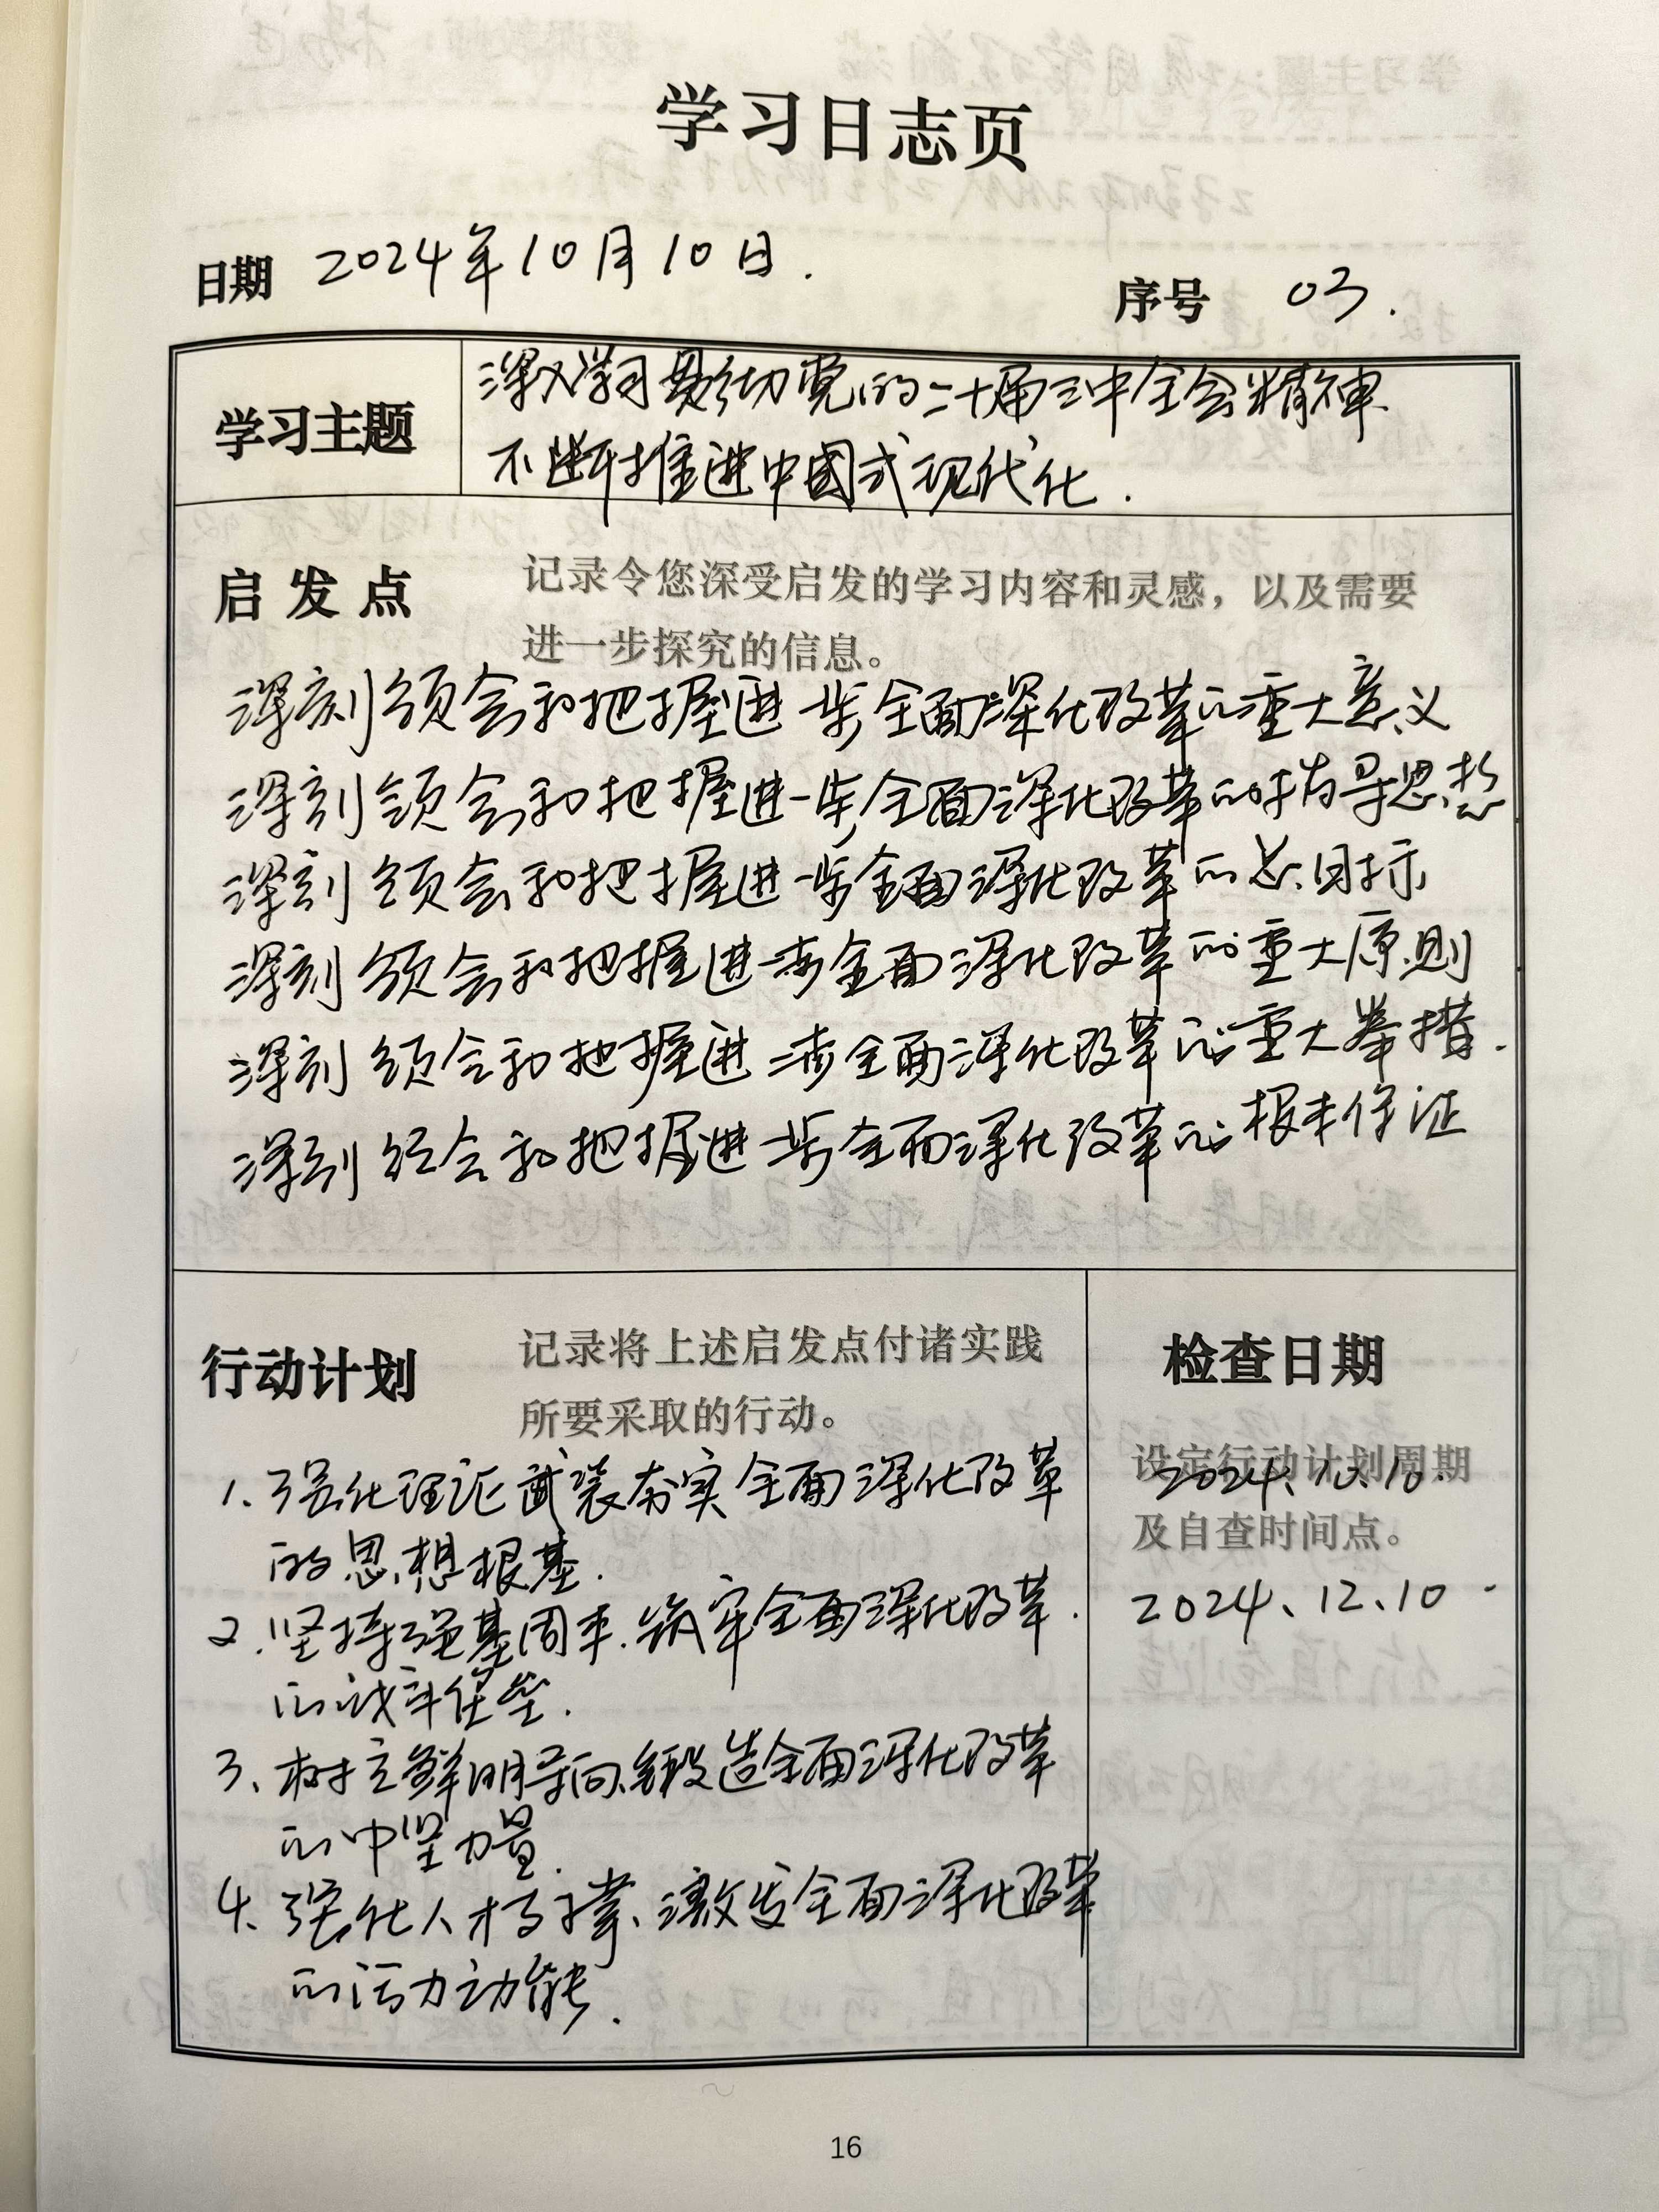 学习日志页
日期 2024年10月10日.
序号 03.
学习主题
深入学习贯彻党的二十届三中全会精神.
不断推进中国式现代化.
启发点
记录令您深受启发的学习内容和灵感，以及需要
进一步探究的信息。
深刻领会和把握进一步全面深化改革的重大意义
深刻领会和把握进一步全面深化改革的指导思想
深刻领会和把握进一步全面深化改革的总目标
深刻领会和把握进一步全面深化改革的重大原则
深刻领会和把握进一步全面深化改革的重大举措.
深刻领会和把握进一步全面深化改革的根本保证
行动计划
记录将上述启发点付诸实践
所要采取的行动。
1、强化理论武装夯实全面深化改革
的思想根基.
2.坚持强基固本.筑牢全面深化改革.
的战斗堡垒.
3、树立鲜明导向、锻造全面深化改革
的中坚力量.
4、强化人才支撑、激发全面深化改革
的活力动能.
检查日期
设定行动计划周期
2024.10.10.
及自查时间点。
2024、12、10.
16